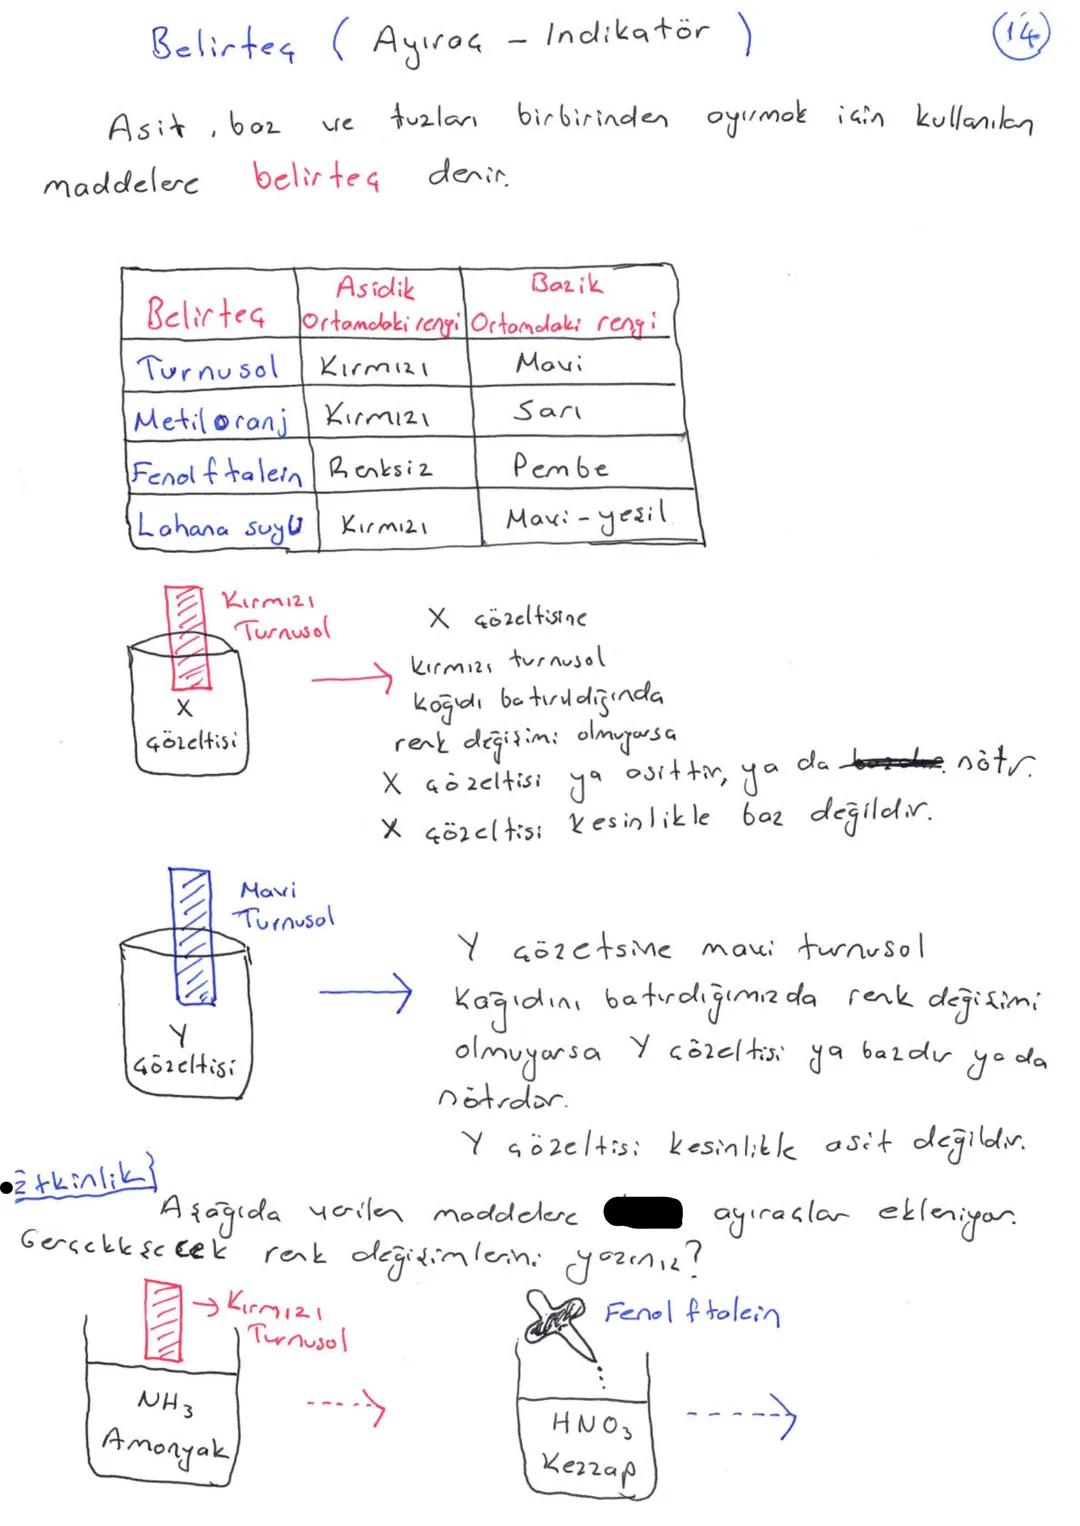 Belirteç ( Ayıraç - Indikatör )
14
Asit, baz ve tuzları birbirinden ayırmak için kullanılan
maddelere belirteç denir.
Belirteç Asidik Ortamdaki rengi Bazik Ortamdaki rengi
Turnusol Kırmızı Mavi
Metil oranj Kırmızı Sarı
Fenolftalein Renksiz Pembe
Lahana suyu Kırmızı Mavi - yeşil
Kırmızı
Turnusol
X
çözeltisi
X çözeltisine
kırmızı turnusol
kağıdı batırıldığında
renk değişimi olmuyorsa
X çözeltisi ya asittir, ya da nötr.
X çözeltisi kesinlikle baz değildir.
Mavi
Turnusol
Y
çözeltisi
Y çözetsine mavi turnusol
kağıdını batırdığımızda renk değişimi
olmuyorsa Y çözeltisi ya bazdır ya da
nötrdür.
Y çözeltisi kesinlikle asit değildir.
Etkinlik}
Aşağıda verilen maddelere ayıraçlar ekleniyor.
Gerçekleşecek renk değişimlerini yazınız?
Kırmızı
Turnusol
NH3
Amonyak
Fenolftalein
HNO3
Kezzap